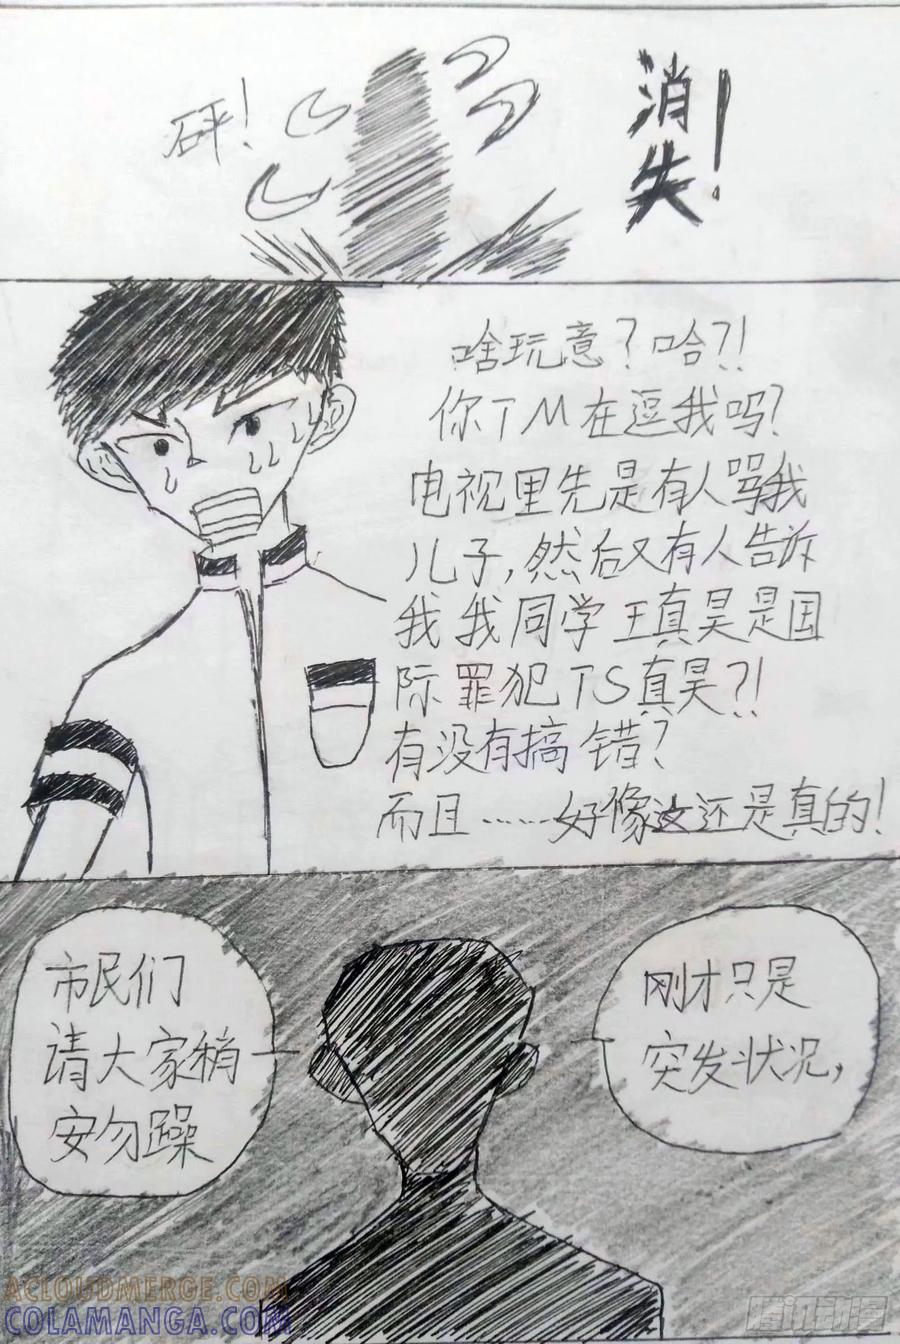 砰！
消失！
啥玩意？哈？！
你TM在逗我吗？
电视里先是有人骂我
儿子，然后又有人告诉
我我同学王真昊是国
际罪犯TS真昊？！
有没有搞错？
而且……好像这还是真的！
市民们
请大家稍
安勿躁
刚才只是
突发状况，
ACLOUDMERGE.COM
COLAMANGA.COM
腾讯动漫